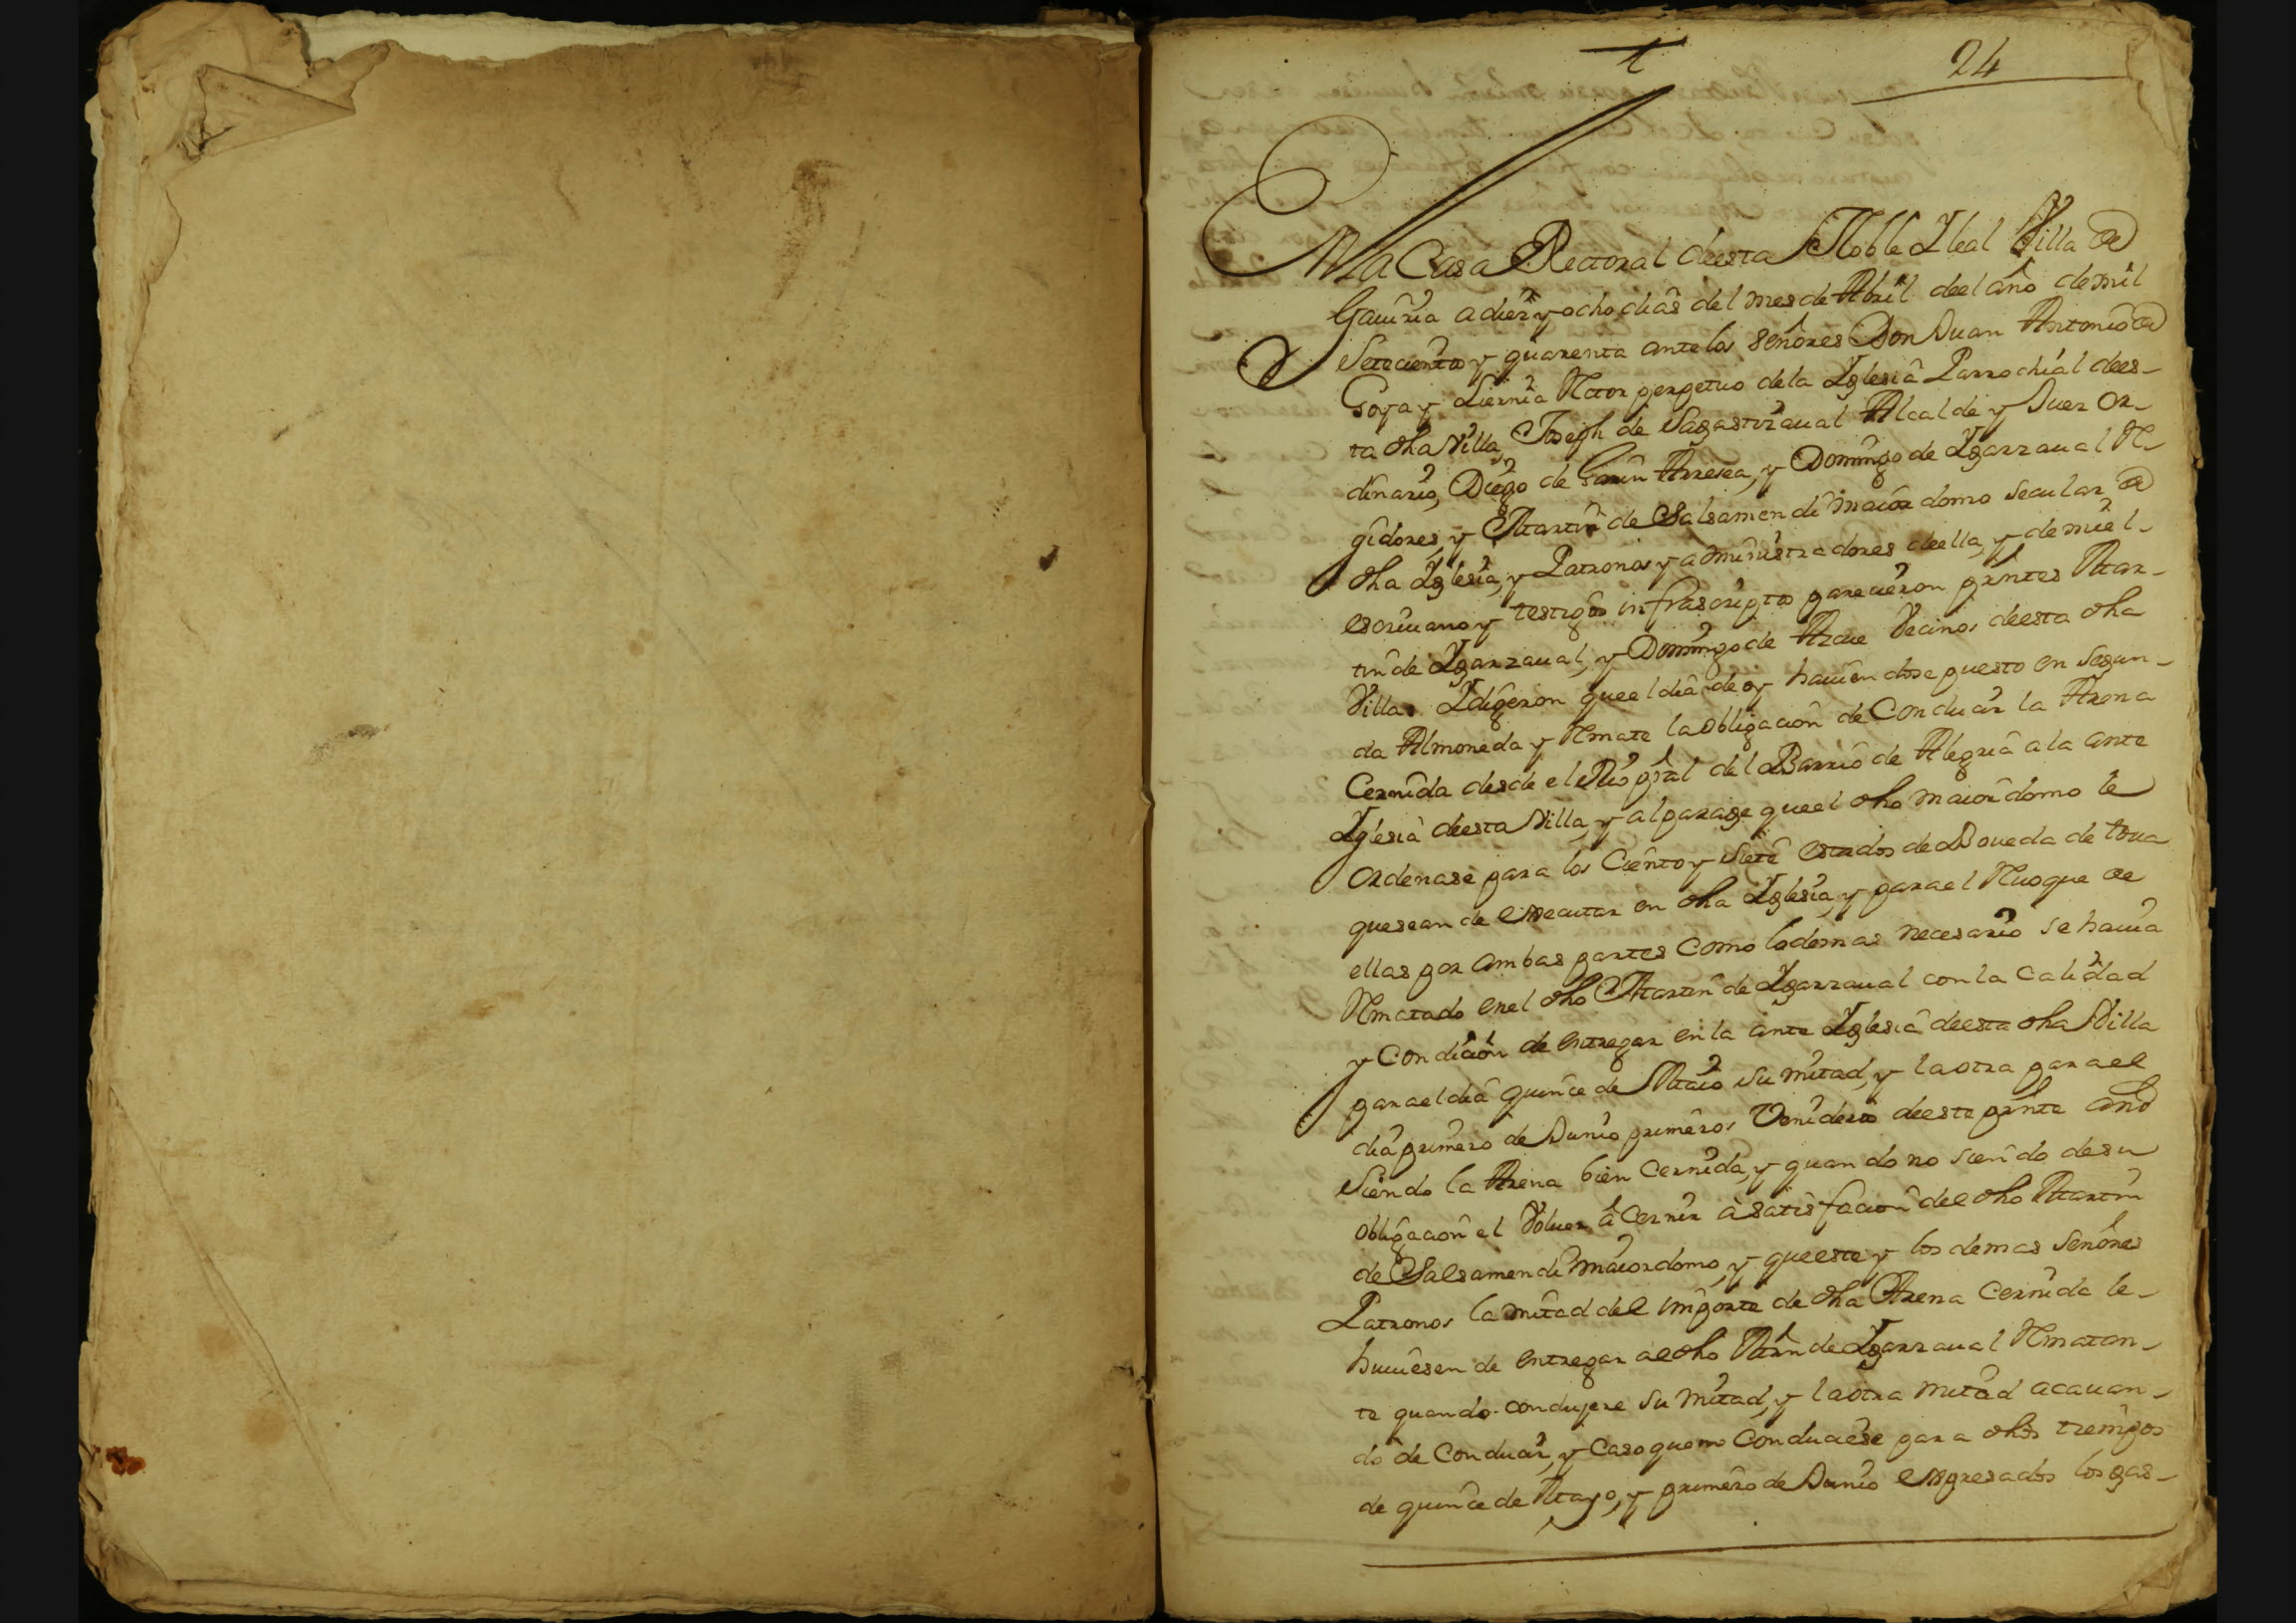 24
En la Casa Rectoral deesta Noble Y leal Villa de
Gauiria a diez y ocho dias del mes de Abril deel año de mil
Setecientos y quarenta ante los señores Don Juan Antonio de
Goya y Liernia Rctor perpetuo de la Yglesia Parrochial dees-
ta dha Villa, Joseph de Sagastizaual Alcalde y Juez Or-
dinario, Diego de Arresea, y Domingo de Ygarzaual Re-
gidores, y Martin de Salsamendi maiordomo secular de
dha Yglesia, y Patronos y administradores deella, y de mi el
escriuano y testigos infrascriptos parecieron prntes Mar-
tin de Ygarzaual, y Domingo de Arcue Vecinos deesta dha
Villa. Y digeron que el dia de oy hauiendose puesto en segun-
da Almoneda y Rmate la obligacion de Conducir la Arena
Cernida desde el Rio pral del Barrio de Alegria a la ante
Yglesia deesta Villa, y al parage que el dho maiordomo le
Ordenase para los Ciento y siete estados de Boueda de toua
que sean de executar en dha Yglesia, y para el Ruoque de
ellas por ambas partes como lo demas necesario se hauia
Rmatado en el dho Martin de Ygarzaual con la Calidad
y Condicion de entregar en la ante Yglesia deesta dha Villa
para el dia quince de Maio su mitad, y la otra para el
dia primero de Junio primeros Venideros deeste prnte año
Siendo la Arena bien Cernida, y quando no siendo de su
obligacion el Voluer à Cernir à satisfacion del dho Martin
de Salsamendi maiordomo, y que este y los demas Señores
Patronos la mitad del importe de dha Arena Cernida le
huuiesen de entregar al dho Mrn de Ygarzaual Rmatan-
te quando condujere su mitad, y la otra mitad acauan-
do de Conducir, y Caso que no Conduciese para dhos tiempos
de quince de Mayo, y primero de Junio expresados los gas-